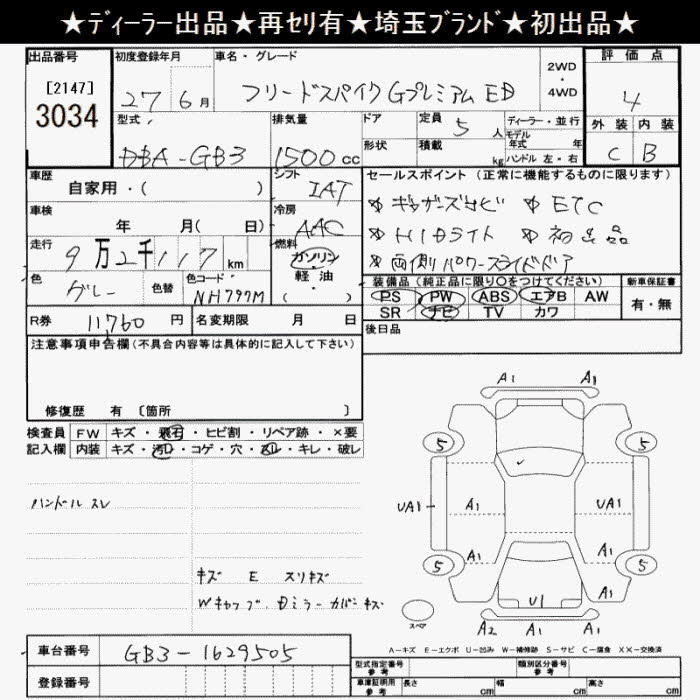 ★ディーラー出品★再セリ有★埼玉ブランド★初出品★
出品番号 初度登録年月 車名・グレード 2WD ・ 4WD 評価点
[2147]
3034
27 6月 フリードスパイク Gプレミアム ED 4
型式 排気量 ドア 定員 5 人 ディーラー・並行 外装 内装
モデル年式 年
DBA-GB3 1500cc 形状 積載 kg ハンドル 左・右 C B
車歴 シフト セールスポイント(正常に機能するものに限ります)
自家用・( ) IAT ギャザーズナビ ETC
車検 冷房 HIDライト 初出品
年 月( 日) AAC 両側パワースライドドア
走行 燃料
9万2千117km ガソリン
軽油
( )
色 グレー 色替 色コード NH797M
装備品(純正品に限り○をつけてください) 新車保証書
PS PW ABS エアB AW 有・無
SR ナビ TV カワ
R券 11760円 名変期限 月 日 後日品
注意事項申告欄(不具合内容等は具体的に記入して下さい)
修復歴 有 〔箇所 〕
検査員 FW キズ・飛石・ヒビ割・リペア跡・×要
記入欄 内装 キズ・汚レ・コゲ・穴・スレ・キレ・破レ
ハンドル スレ
キズ E スリキズ
Wキャップ、Dミラーカバーキズ
A1 A1
5 5
UA1 A1 UA1
A1 A1
5 5
A1
U1
スペア A2 A1 A1
A-キズ E-エクボ U-凹み W-補修跡 S-サビ C-腐食 XX-交換済
車台番号 GB3-1629505
登録番号
型式指定番号 参考 類別区分番号 参考
車庫証明用 参考 長さ cm 幅 cm 高さ cm